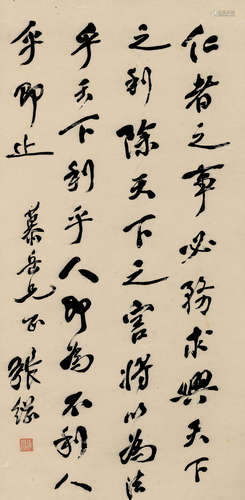 仁者之事必務求興天下
之利除天下之害將以為法
乎天下利乎人即為不利人
乎即止
慕岳兄正
張繼